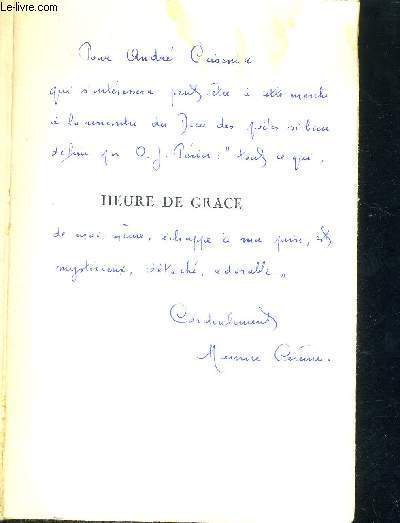 www.le-livre.com
Pour André
qui s'intéressera peut-être à cette marche
à la rencontre du Dieu des poètes si bien
défini par O. J. Périer : "tout ce qui,
HEURE DE GRACE
de moi-même, échappe à ma prise, est
mystérieux, détaché, adorable"
Cordialement
Maurice Carême.